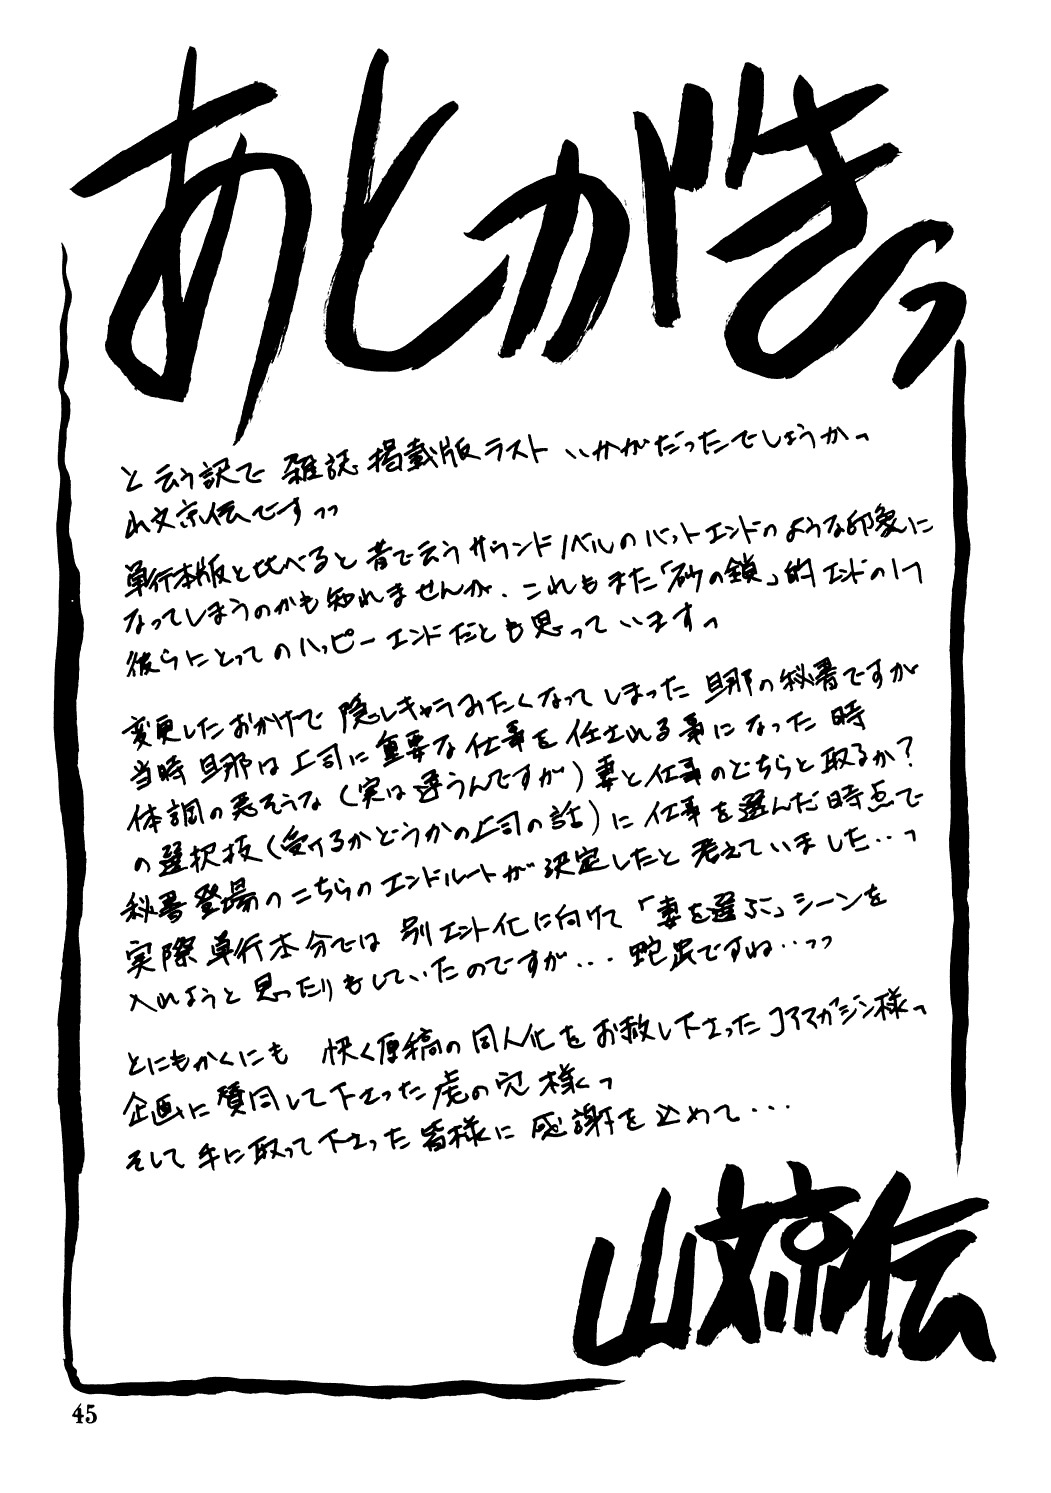 あとがきっ
と云う訳で 雑誌掲載版ラスト いかがだったでしょうかっ
山文京伝ですっっ
単行本版と比べると昔で云うサウンドノベルのバットエンドのような印象に
なってしまうのかも知れませんが、これもまた「砂の鎖」的エンドの1つ
彼らにとってのハッピーエンドだとも思っていますっ
変更したおかげで 隠しキャラみたくなってしまった旦那の秘書ですが
当時 旦那は上司に重要な仕事を任される事になった時
体調の悪そうな(実は違うんですが)妻と仕事のどちらと取るか?
の選択技(受けるかどうかの上司の話)に仕事を選んだ時点で
秘書登場のこちらのエンドルートが決定したと考えていました‥っ
実際 単行本分では 別エンド化に向けて「妻を選ぶ」シーンを
入れようと思ったりもしていたのですが... 蛇足ですね‥っっ
とにもかくにも 快く原稿の同人化をお赦し下さったコアマガジン様っ
企画に賛同して下さった虎の穴様っ
そして手に取って下さった皆様に感謝を込めて...
山文京伝
45